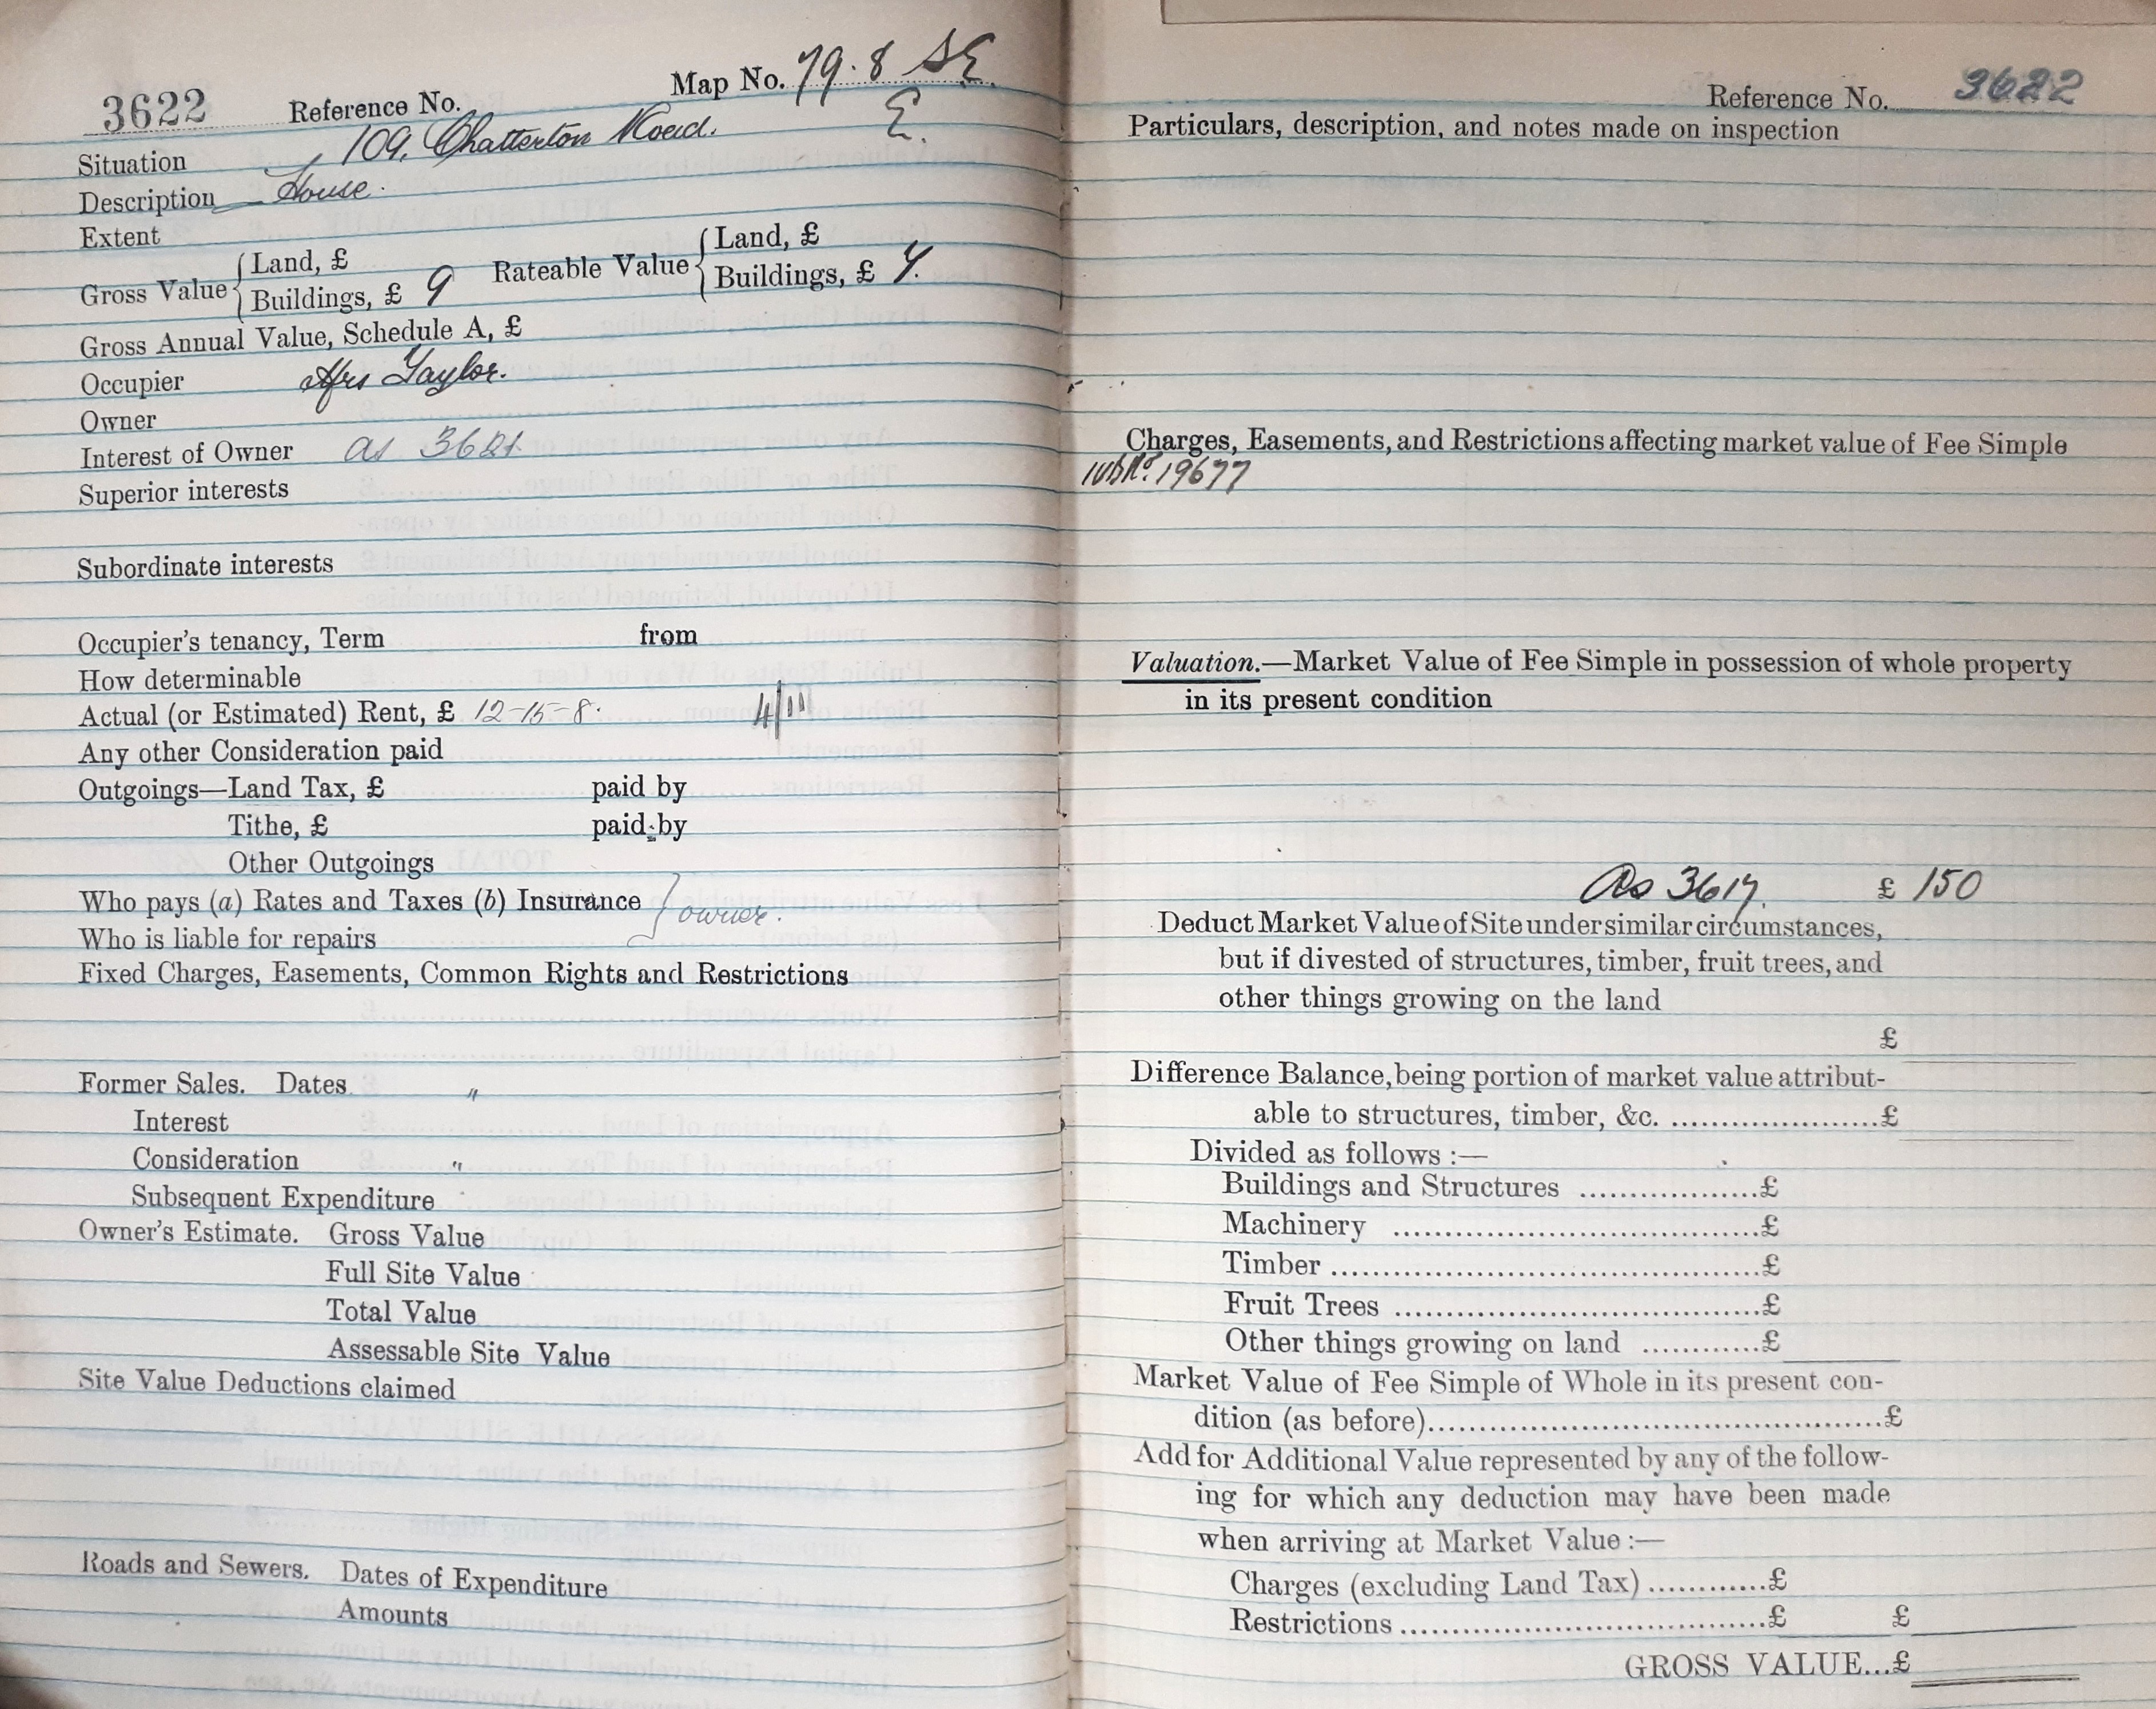 3622 Reference No. Map No. 79.8 SE
E.
Situation 109, Chatterton Road.
Description House.
Extent
Gross Value { Land, £
Buildings, £ 9
Rateable Value { Land, £
Buildings, £ 7.
Gross Annual Value, Schedule A, £
Occupier Mrs Taylor.
Owner
Interest of Owner as 3621.
Superior interests
Subordinate interests
Occupier's tenancy, Term from
How determinable
Actual (or Estimated) Rent, £ 12-15-8. 4/11
Any other Consideration paid
Outgoings—Land Tax, £ paid by
Tithe, £ paid by
Other Outgoings
Who pays (a) Rates and Taxes (b) Insurance } owner.
Who is liable for repairs
Fixed Charges, Easements, Common Rights and Restrictions
Former Sales. Dates "
Interest
Consideration "
Subsequent Expenditure
Owner's Estimate. Gross Value
Full Site Value
Total Value
Assessable Site Value
Site Value Deductions claimed
Roads and Sewers. Dates of Expenditure
Amounts
Reference No. 3622
Particulars, description, and notes made on inspection
Charges, Easements, and Restrictions affecting market value of Fee Simple
19677
Valuation.—Market Value of Fee Simple in possession of whole property
in its present condition
As 3617. £ 150
Deduct Market Value of Site under similar circumstances,
but if divested of structures, timber, fruit trees, and
other things growing on the land
£
Difference Balance, being portion of market value attribut-
able to structures, timber, &c. ....................£
Divided as follows :—
Buildings and Structures ...................£
Machinery ......................................£
Timber .............................................£
Fruit Trees ......................................£
Other things growing on land ............£
Market Value of Fee Simple of Whole in its present con-
dition (as before)................................................£
Add for Additional Value represented by any of the follow-
ing for which any deduction may have been made
when arriving at Market Value :—
Charges (excluding Land Tax) ............£
Restrictions .....................................£ £
GROSS VALUE...£